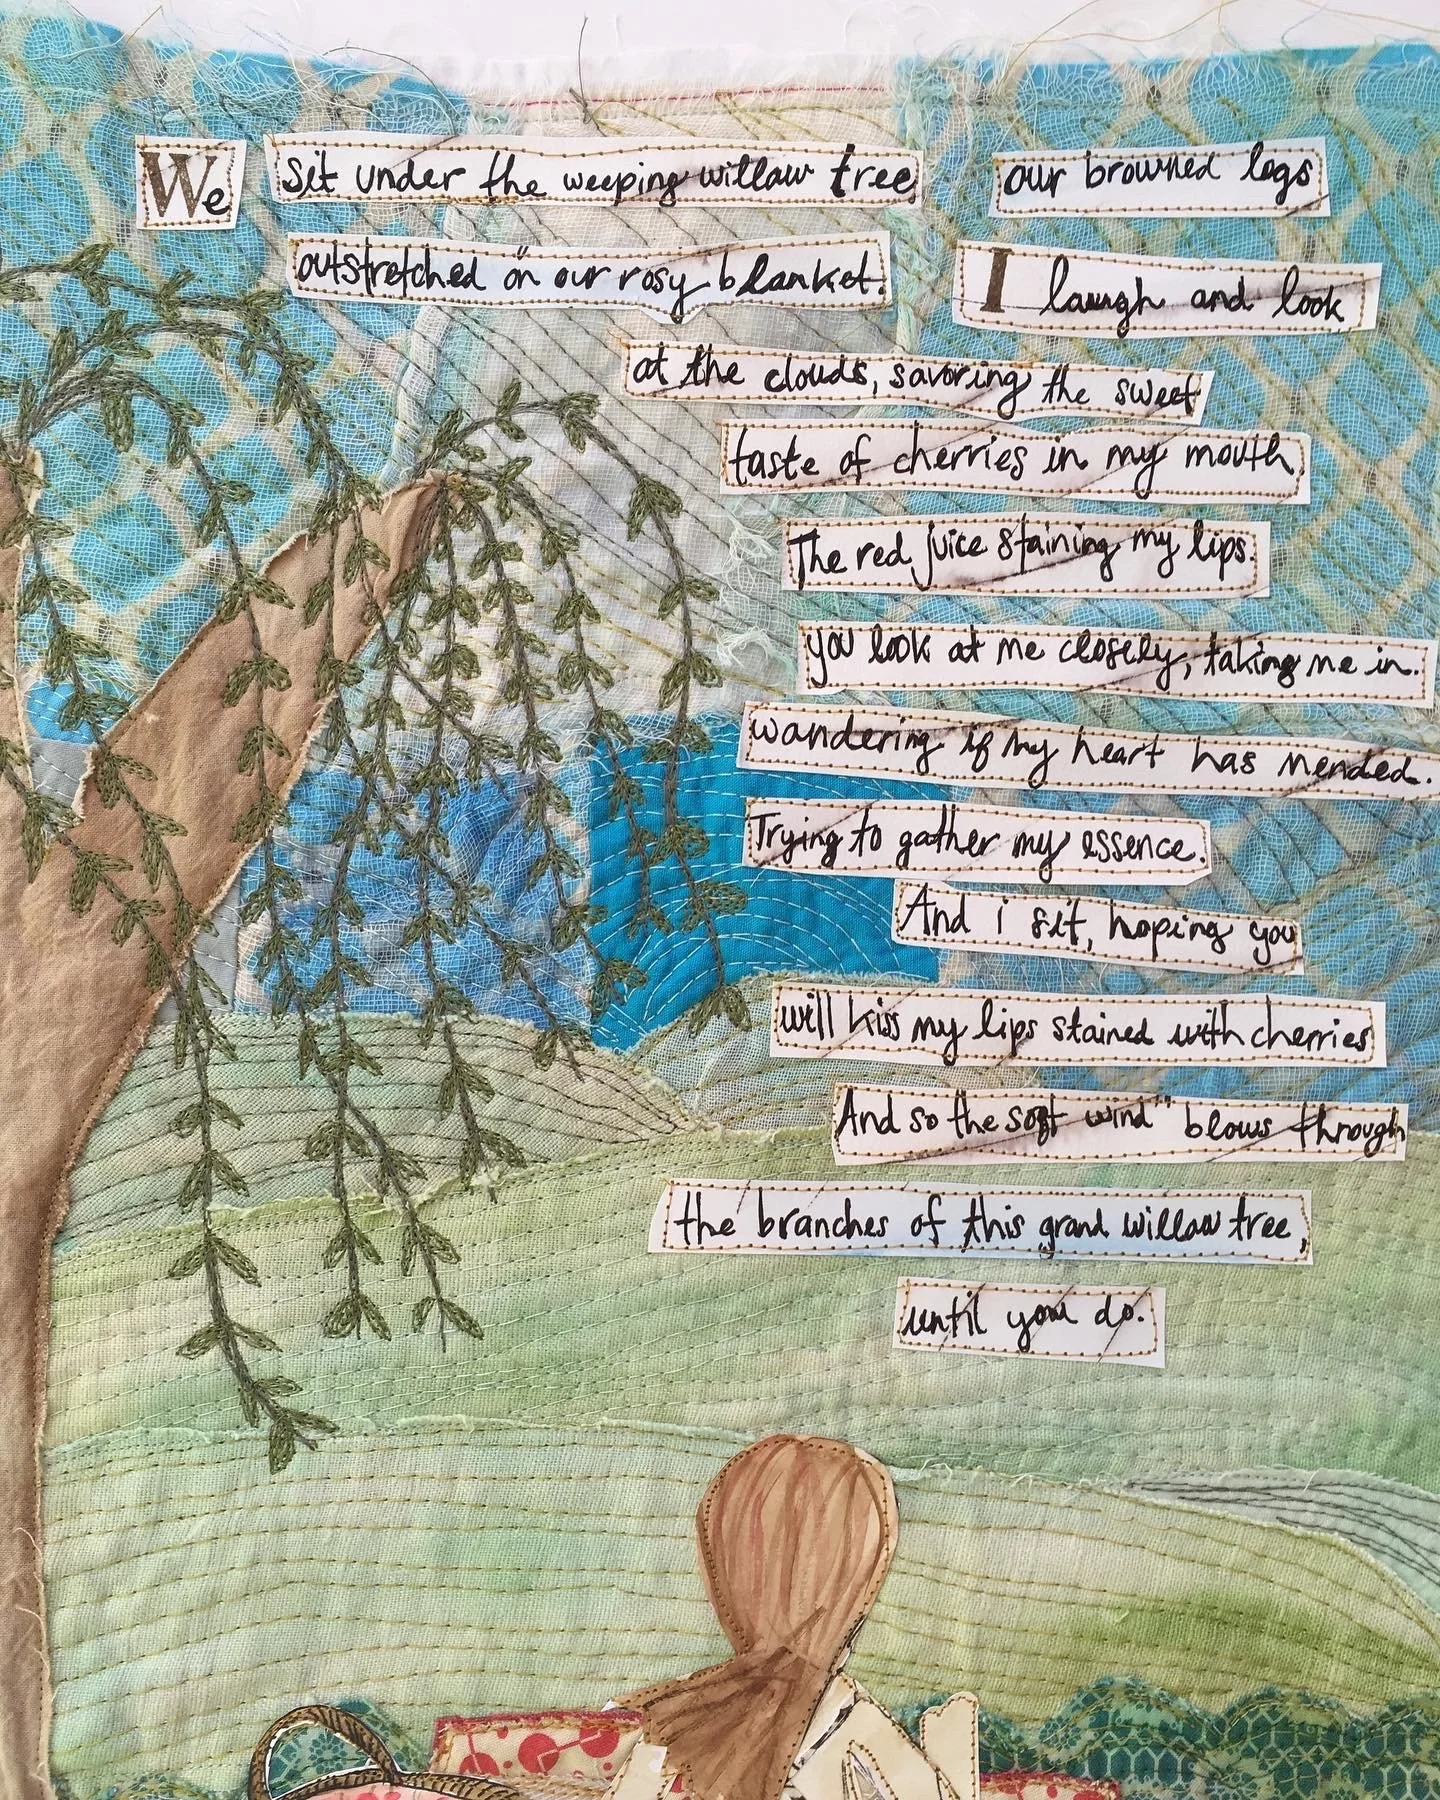 We sit under the weeping willow tree our browned legs
outstretched on our rosy blanket. I laugh and look
at the clouds, savoring the sweet
taste of cherries in my mouth
The red juice staining my lips.
you look at me closely, taking me in.
wandering if my heart has mended.
Trying to gather my essence.
And i sit, hoping you
will kiss my lips stained with cherries
And so the soft wind blows through
the branches of this grand willow tree,
until you do.